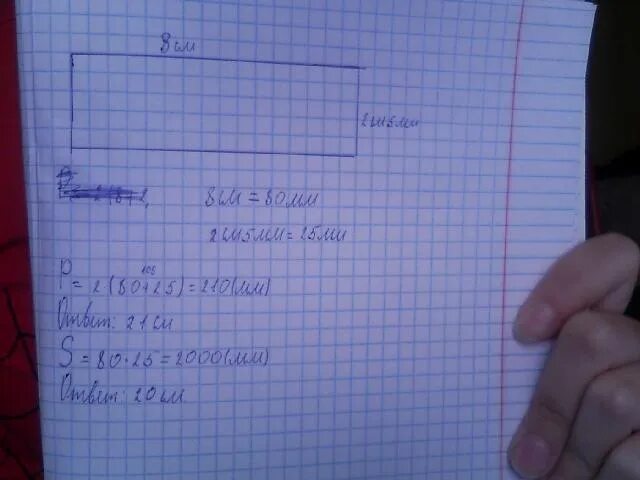 8см
2см5мм
8см = 80мм
2см5мм = 25мм
105
P = 2(80+25) = 210(мм)
Ответ: 21см
S = 80·25 = 2000(мм)
Ответ: 20см.